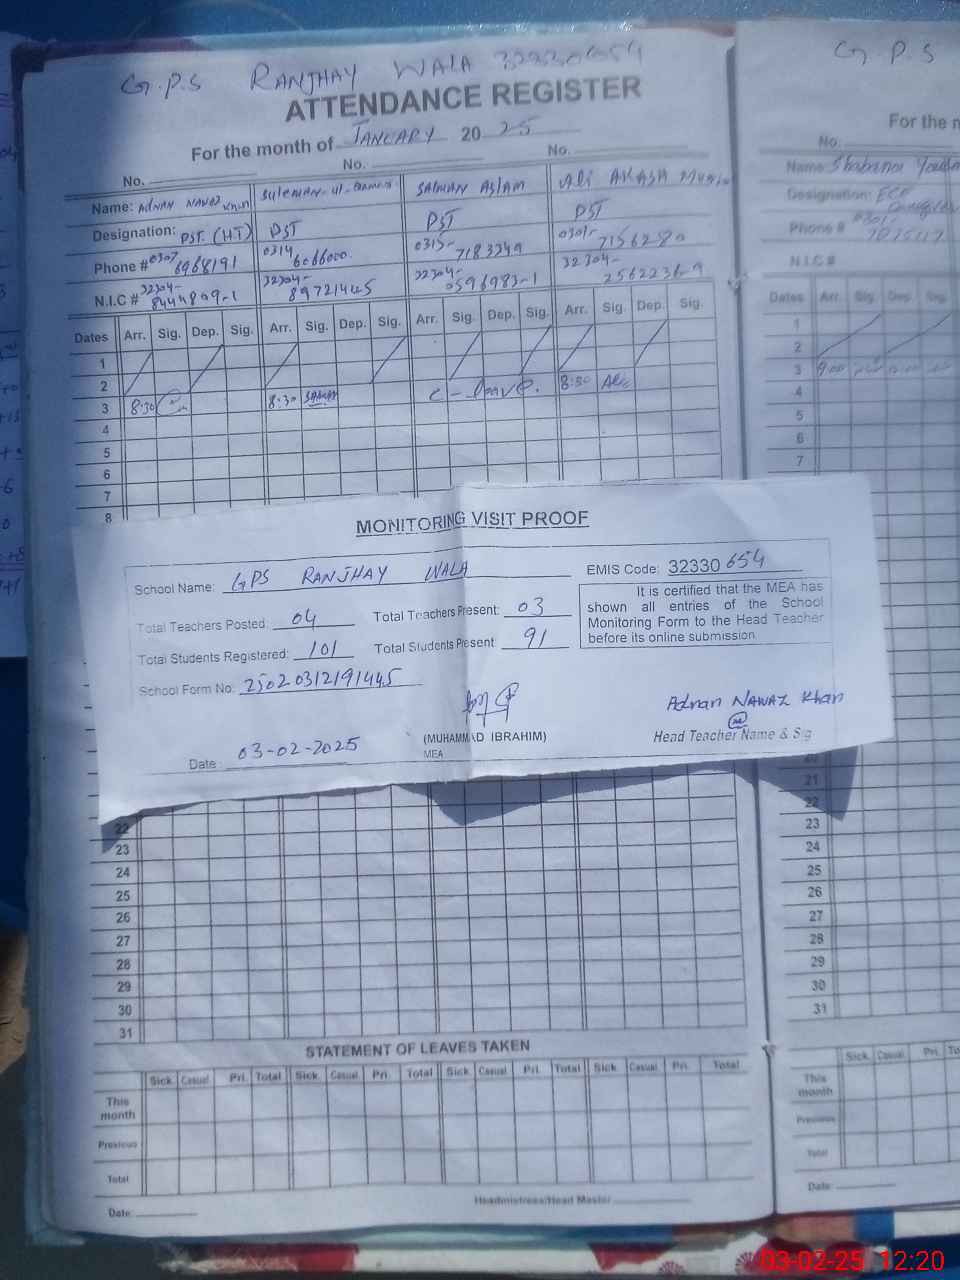 G.P.S RANJHAY WALA 32330654
ATTENDANCE REGISTER
For the month of JANUARY 2025
No. No. No.
Name: ADNAN NAWAZ Khan SALMAN ASLAM Ali
Designation: PST. (HT) PST PST PST
Phone # 0307 6968191 0314 6066000 0315- 7183349 0301- 7156280
N.I.C # 32304- 8444809-1 32304- 89721445 32304- 0596983-1 32304- 2562236-9
Dates Arr. Sig. Dep. Sig. Arr. Sig. Dep. Sig. Arr. Sig. Dep. Sig. Arr. Sig. Dep. Sig.
1
2
3 8:30 8:30 C-Leave. 8:30 Ali
4
5
6
7
8
MONITORING VISIT PROOF
School Name: GPS RANJHAY WALA
EMIS Code: 32330 654
Total Teachers Posted: 04 Total Teachers Present: 03
Total Students Registered: 101 Total Students Present 91
It is certified that the MEA has
shown all entries of the School
Monitoring Form to the Head Teacher
before its online submission
School Form No: 25020312191445
Date: 03-02-2025
(MUHAMMAD IBRAHIM)
MEA
Adnan NAWAZ Khan
Head Teacher Name & Sig
22
23
24
25
26
27
28
29
30
31
STATEMENT OF LEAVES TAKEN
Sick. Casual Pri. Total Sick. Casual Pri. Total Sick. Casual Pri. Total Sick. Casual Pri. Total
This
month
Previous
Total
Date: Headmistress/Head Master
G.P.S
For the m
No.
Name: Shabana
Designation: ECE
Phone # 0301-
N.I.C #
Dates Arr. Sig. Dep. Sig.
1
2
3 9:00
4
5
6
7
20
21
22
23
24
25
26
27
28
29
30
31
Sick. Casual Pri. To
This
month
Previous
Total
Date:
03-02-25 12:20